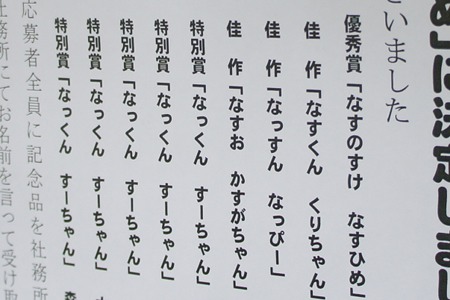 め」に決定しまし
いました
優秀賞「なすのすけ　なすひめ」
佳　作「なすくん　くりちゃん」
佳　作「なっすん　なっぴー」
佳　作「なすお　かすがちゃん」
特別賞「なっくん　すーちゃん」
特別賞「なっくん　すーちゃん」
特別賞「なっくん　すーちゃん」
特別賞「なっくん　すーちゃん」
特別賞「なっくん　すーちゃん」森
応募者全員に記念品を社務所
社務所にてお名前を言って受け取